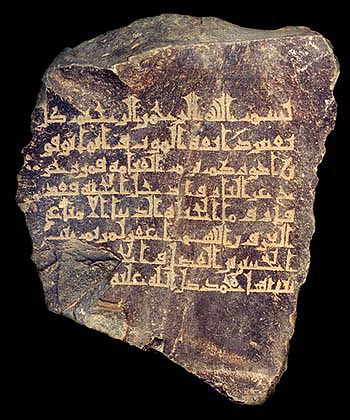 بسم الله الرحمن الرحيم كل
نفس ذائقة الموت وانما توفو
ن اجوركم يوم القيامة فمن زحز
ح عن النار وادخل الجنة فقد
فاز وما الحياة الدنيا الا متاع
الغرور اللهم اغفر
محمد صلى الله عليه